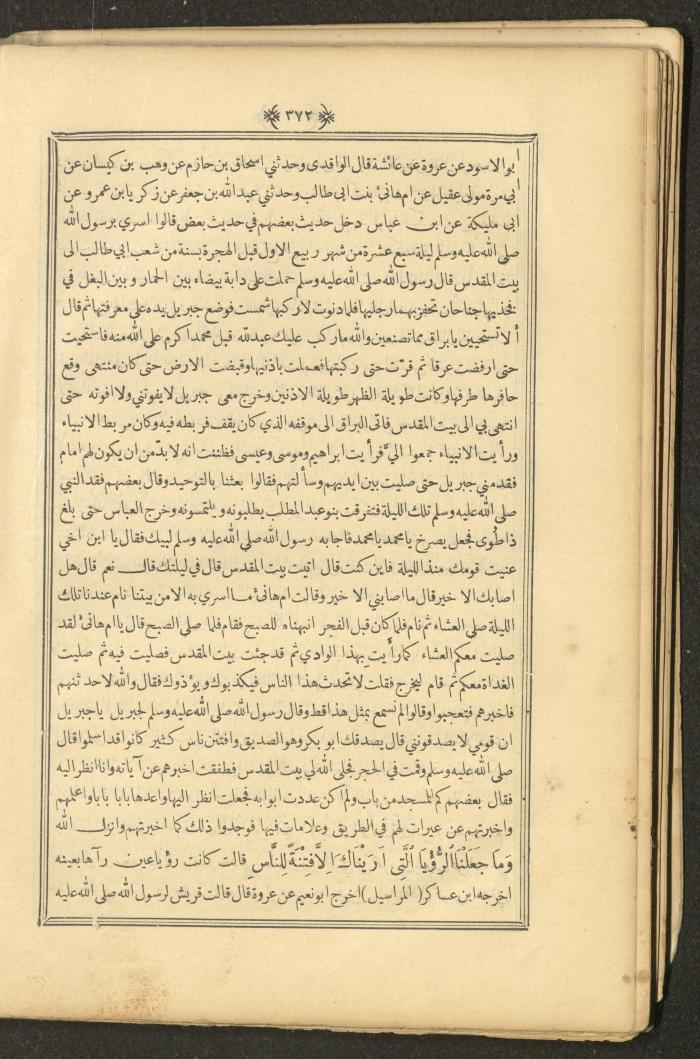 ٣٧٢
ابو الاسود عن عروة عن عائشة قال الواقدى وحدثني اسحاق بن حازم عن وهب بن كيسان عن
ابي مرة مولى عقيل عن ام هانئ بنت ابى طالب وحدثني عبد الله بن جعفر عن زكريا بن عمرو عن
ابى مليكة عن ابن عباس دخل حديث بعضهم في حديث بعض قالوا اسري برسول الله
صلى الله عليه وسلم ليلة سبع عشرة من شهر ربيع الاول قبل الهجرة بسنة من شعب ابي طالب الى
بيت المقدس قال رسول الله صلى الله عليه وسلم حملت على دابة بيضاء بين الحمار وبين البغل في
فخذيها جناحان تحفز بهما رجليها فلما دنوت لاركبها شمست فوضع جبريل يده على معرفتها ثم قال
ألا تستحيين يا براق مما تصنعين والله ما ركب عليك عبد لله قبل محمد اكرم على الله منه فاستحيت
حتى ارفضت عرقا ثم قرّت حتى ركبتها فعملت باذنيها وقبضت الارض حتى كان منتهى وقع
حافرها طرفها وكانت طويلة الظهر طويلة الاذنين وخرج معى جبريل لا يفوتني ولا افوته حتى
انتهى بي الى بيت المقدس فاتى البراق الى موقفه الذي كان يقف فربطه فيه وكان مربط الانبياء
ورأيت الانبياء جمعوا اليّ فرأيت ابراهيم وموسى وعيسى فظننت انه لا بدّ من ان يكون لهم امام
فقدمني جبريل حتى صليت بين ايديهم وسألتهم فقالوا بعثنا بالتوحيد وقال بعضهم فقد النبي
صلى الله عليه وسلم تلك الليلة فتفرقت بنو عبد المطلب يطلبونه ويلتمسونه وخرج العباس حتى بلغ
ذا طوى فجعل يصرخ يا محمد يا محمد فاجابه رسول الله صلى الله عليه وسلم لبيك فقال يا ابن اخي
عنيت قومك منذ الليلة فاين كنت قال اتيت بيت المقدس قال في ليلتك قال نعم قال هل
اصابك الا خير قال ما اصابني الا خير وقالت ام هانئ ما اسري به الا من بيتنا نام عندنا تلك
الليلة صلى العشاء ثم نام فلما كان قبل الفجر انبهناه للصبح فقام فلما صلى الصبح قال يا ام هانئ لقد
صليت معكم العشاء كما رأيت بهذا الوادي ثم قد جئت بيت المقدس فصليت فيه ثم صليت
الغداة معكم ثم قام ليخرج فقلت لا تحدث هذا الناس فيكذبوك ويؤذوك فقال والله لاحدثنهم
فاخبرهم فتعجبوا وقالوا لم نسمع بمثل هذا قط وقال رسول الله صلى الله عليه وسلم لجبريل يا جبريل
ان قومي لا يصدقونني قال يصدقك ابو بكر وهو الصديق وافتتن ناس كثير كانوا قد اسلموا قال
صلى الله عليه وسلم وقمت في الحجر فجلى الله لي بيت المقدس فطفقت اخبرهم عن آياته وانا انظر اليه
فقال بعضهم كم للمسجد من باب ولم اكن عددت ابوابه فجعلت انظر اليها واعدها بابا بابا واعلمهم
واخبرتهم عن عيرات لهم في الطريق وعلامات فيها فوجدوا ذلك كما اخبرتهم وانزل الله
وَمَا جَعَلْنَا الرُّؤْيَا الَّتِي اَرَيْنَاكَ اِلاَّ فِتْنَةً لِلنَّاسِ قالت كانت رؤيا عين رآها بعينه
اخرجه ابن عساكر (المراسيل) اخرج ابو نعيم عن عروة قال قالت قريش لرسول الله صلى الله عليه